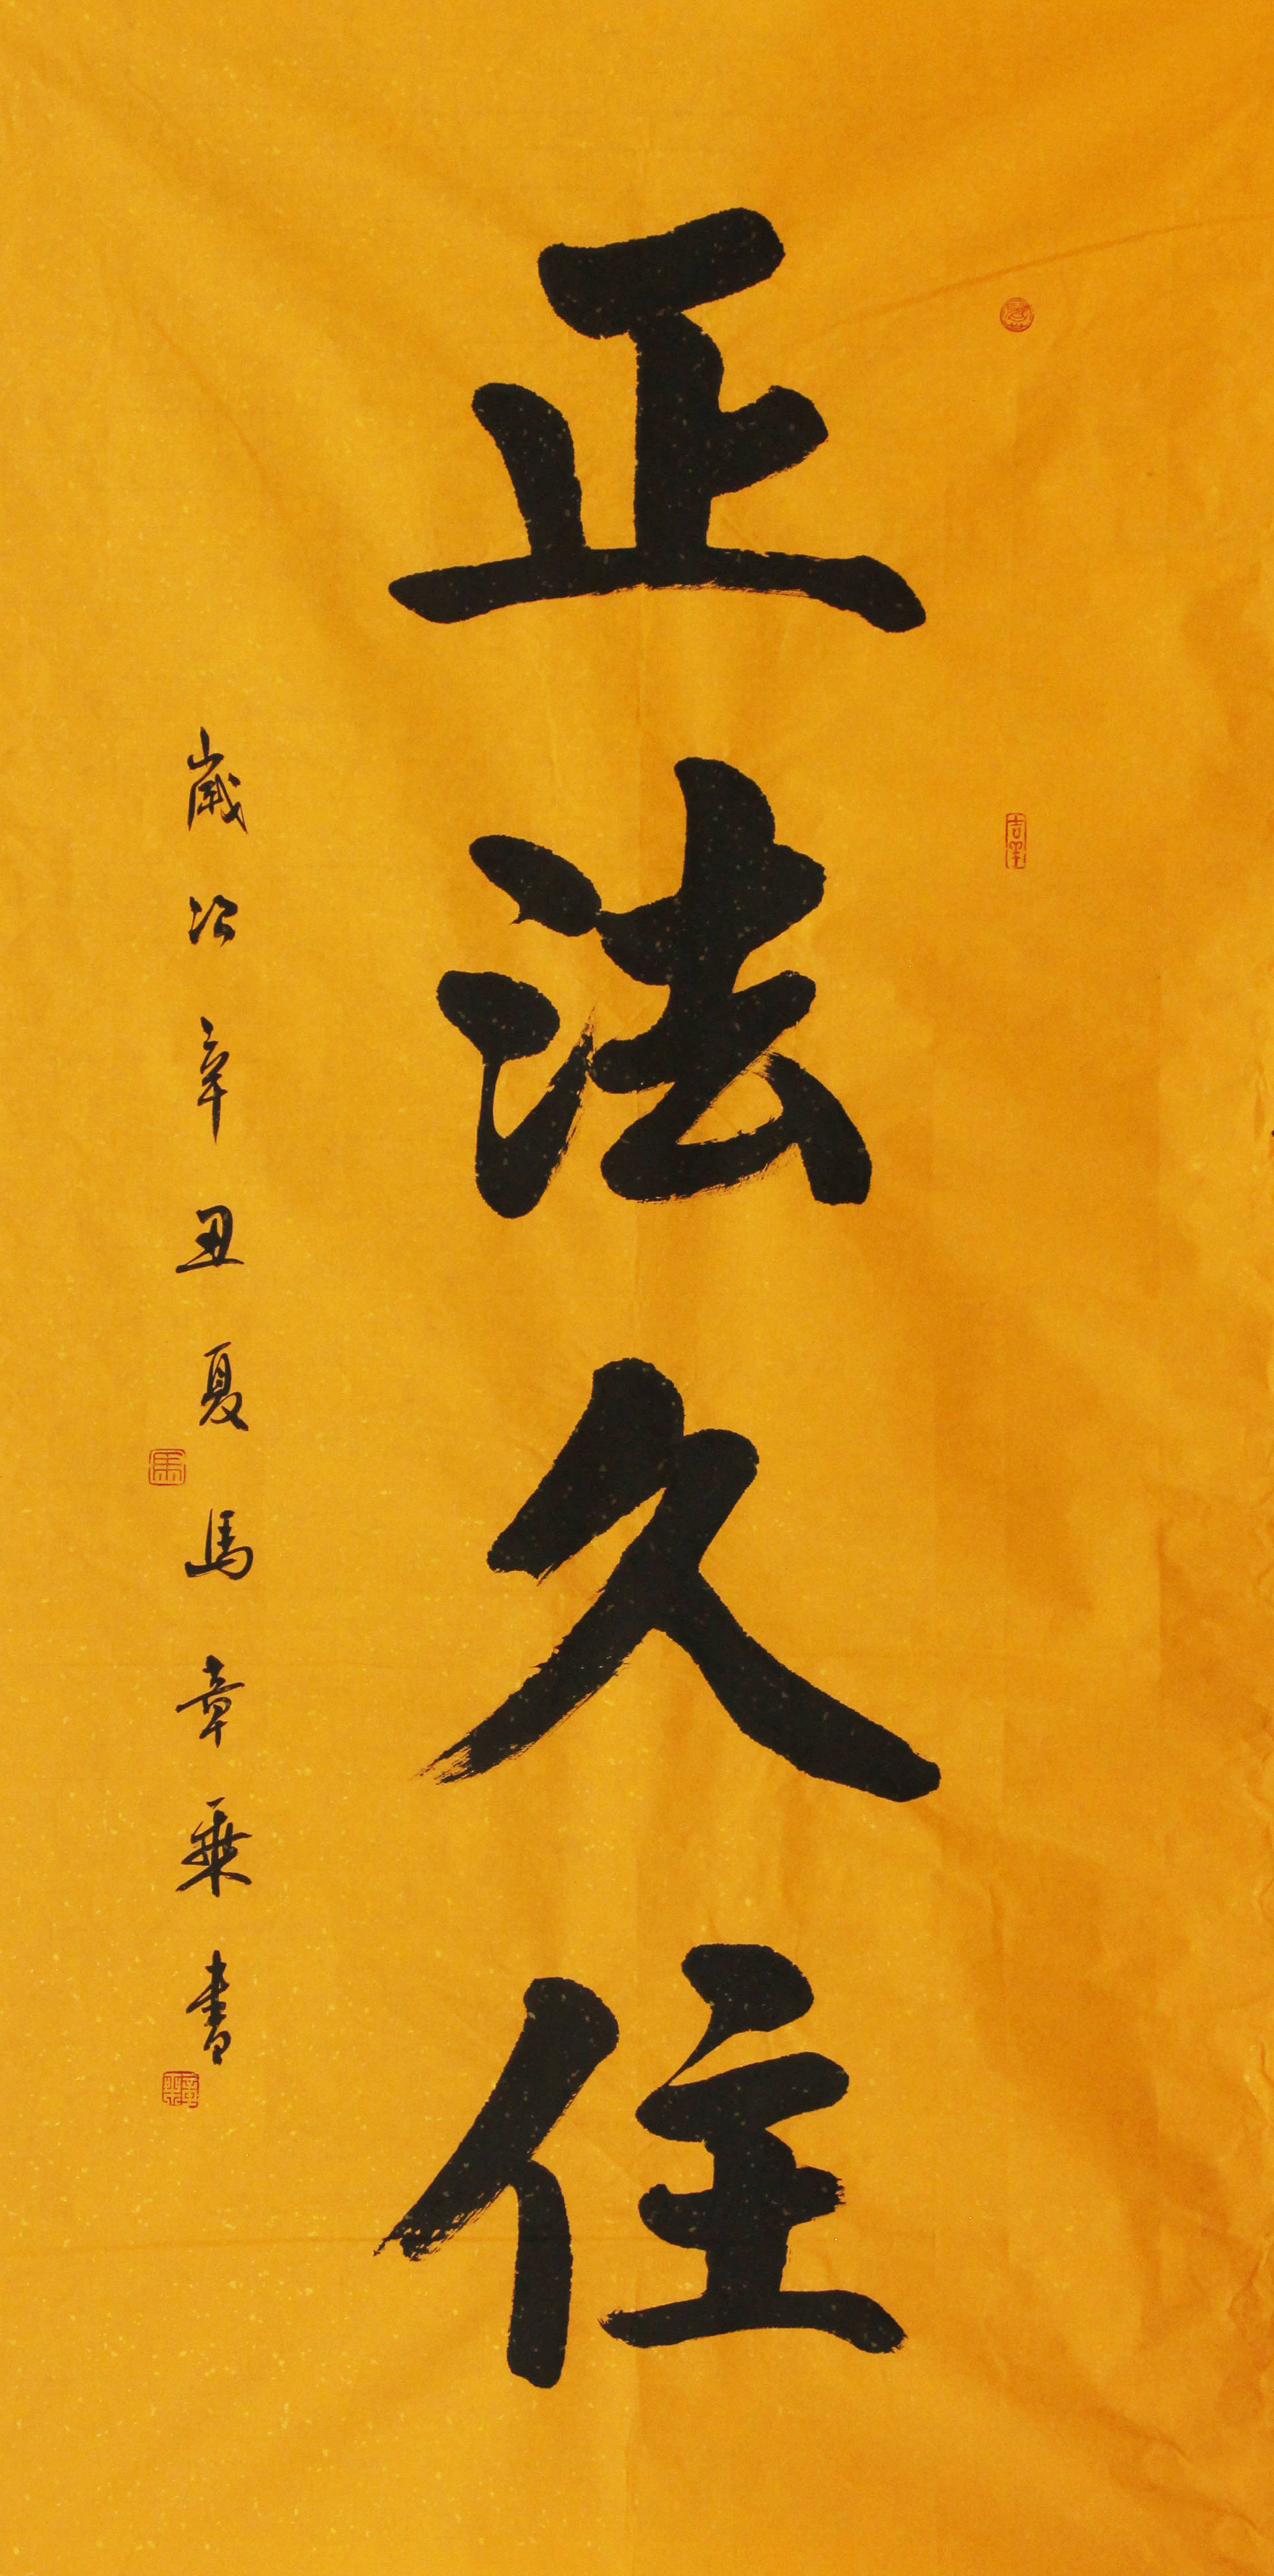 正法久住
歲次辛丑夏
馬章乘書
馬